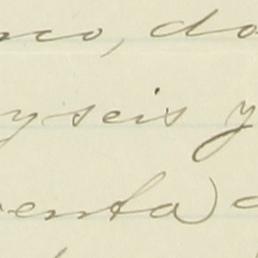 nco, do
y seis y
enta)